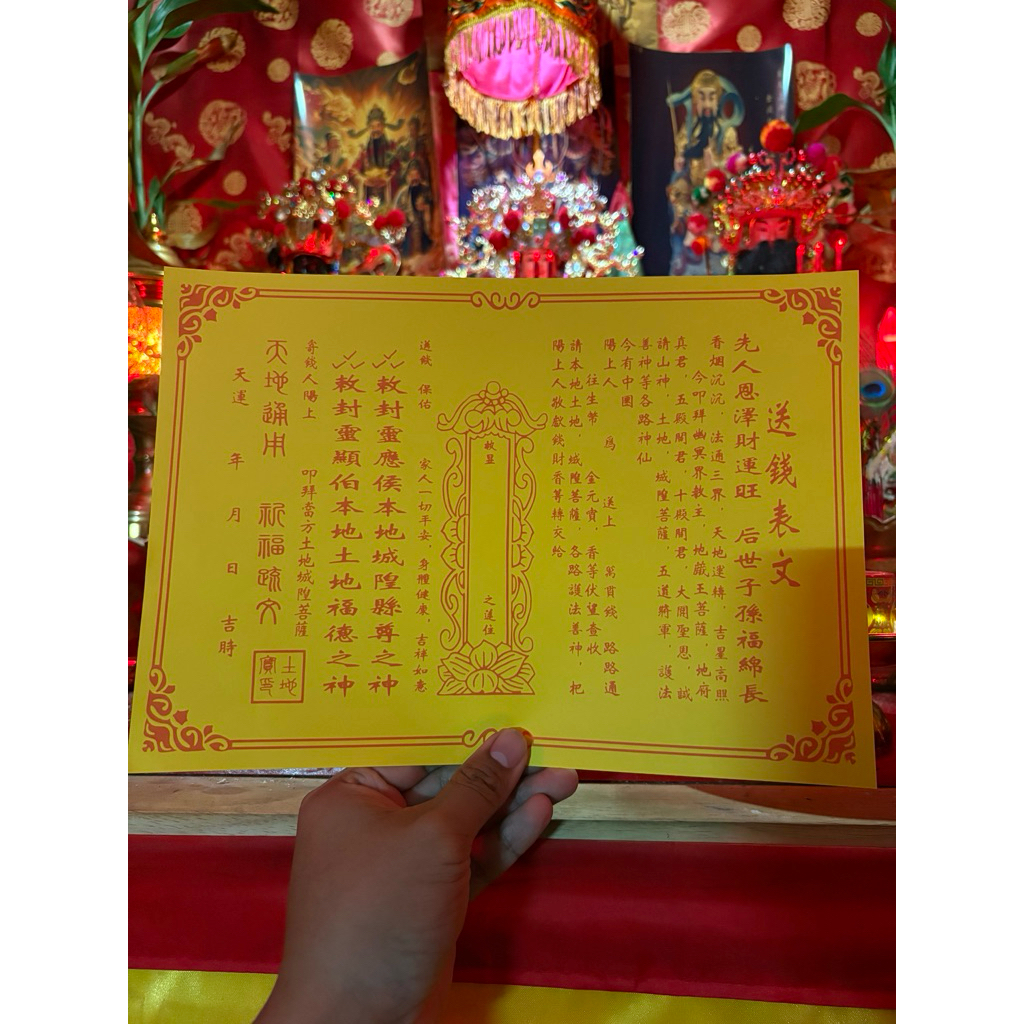 送錢表文
先人恩澤財運旺 后世子孫福綿長
香烟沉沉，法通三界，天地運轉，吉星高照
今叩拜幽冥界教主，地藏王菩薩，地府
真君，五殿閻君，十殿閻君，大開聖恩，誠
請山神，土地，城隍菩薩，五道將軍，護法
善神等各路神仙
今有中國
陽上人 為 送上 萬貫錢 路路通
往生幣 金元寶，香等伏望查收
請本地土地，城隍菩薩，各路護法善神，把
陽上人敬獻錢財香等轉交給
敕呈 之蓮位
送錢 保佑 家人一切平安，身體健康，吉祥如意
敕封靈應侯本地城隍縣尊之神
敕封靈顯伯本地土地福德之神
寄錢人陽上 叩拜當方土地城隍菩薩
天地通用 祈福疏文
天運 年 月 日 吉時
土地寶印